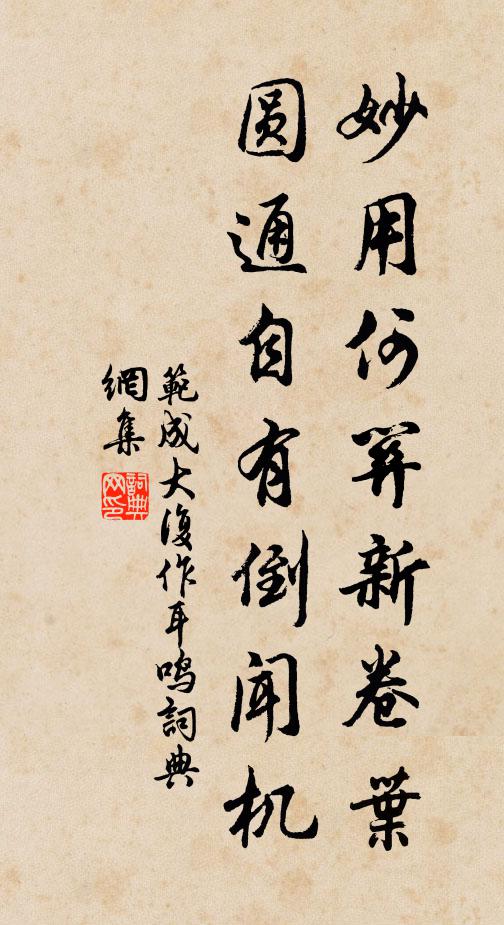 妙用何關新卷葉
圆通自有倒闻机
範成大復作耳鸣詞典
網集
詞典
网印